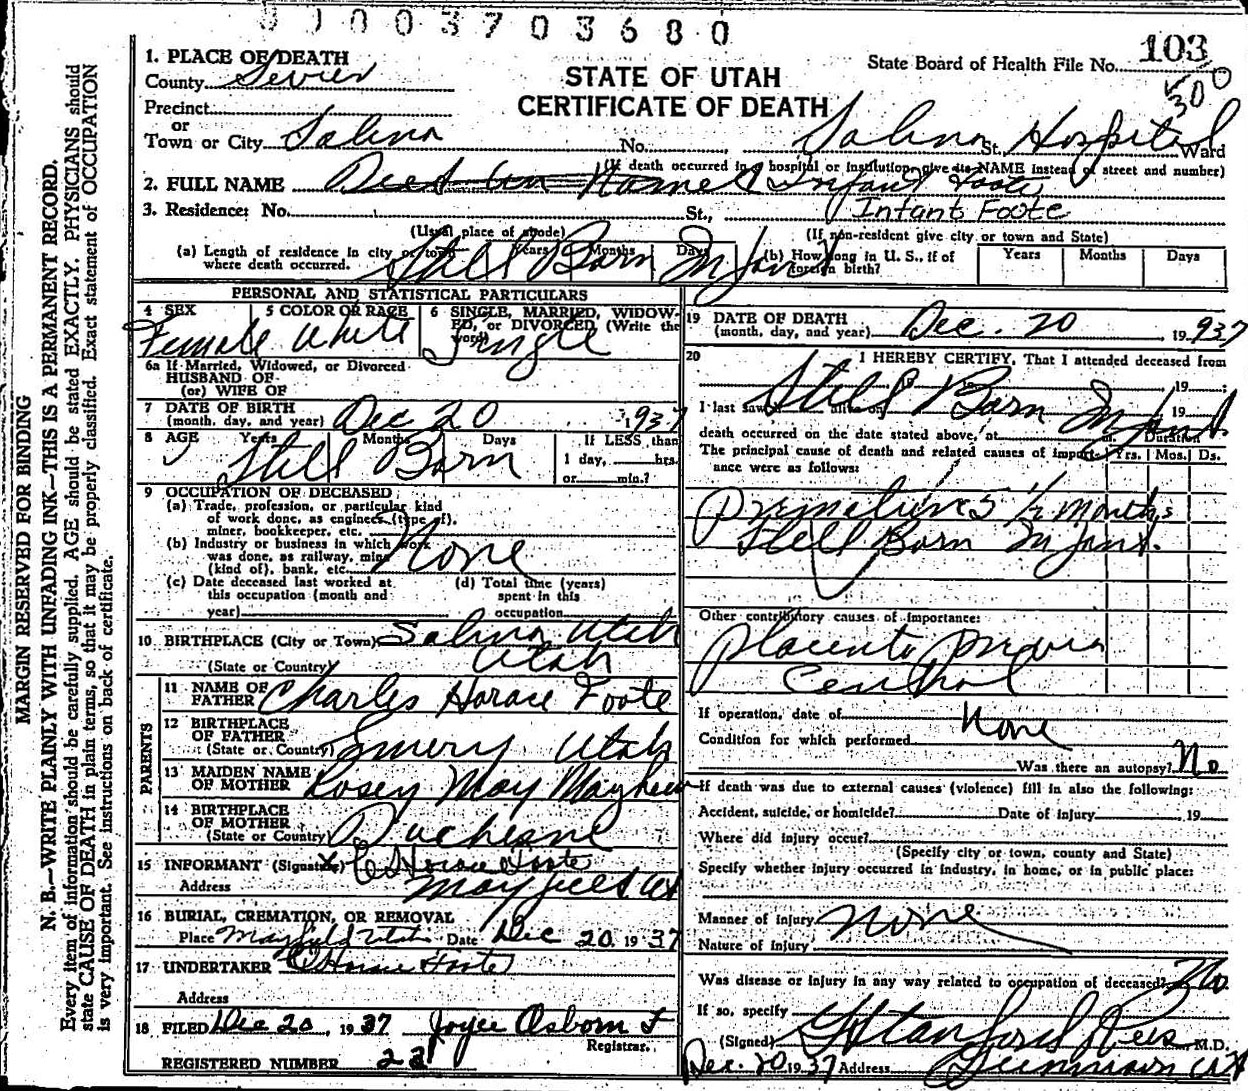 0003703680
1. PLACE OF DEATH
County Sevier
STATE OF UTAH
CERTIFICATE OF DEATH
State Board of Health File No. 103
500
Precinct
or
Town or City Salina No. St. Ward
Salina Hospital
(If death occurred in a hospital or institution, give its NAME instead of street and number)
2. FULL NAME Infant Foote
3. Residence: No. St.,
Infant Foote
(Usual place of abode) (If non-resident give city or town and State)
(a) Length of residence in city or town where death occurred. Years Months Days
Still Born Infant
(b) How long in U. S., if of foreign birth? Years Months Days
PERSONAL AND STATISTICAL PARTICULARS
4 SEX Female
5 COLOR OR RACE White
6 SINGLE, MARRIED, WIDOWED, or DIVORCED (Write the word) Single
6a If Married, Widowed, or Divorced
HUSBAND OF
(or) WIFE OF
7 DATE OF BIRTH
(month, day, and year) Dec 20 1937
8 AGE Years Months Days If LESS than
1 day, hrs.
or min.?
Still Born
9 OCCUPATION OF DECEASED
(a) Trade, profession, or particular kind
of work done, as engineer (type of),
miner, bookkeeper, etc.
(b) Industry or business in which work
was done, as railway, mine
(kind of), bank, etc. None
(c) Date deceased last worked at
this occupation (month and
year)
(d) Total time (years)
spent in this
occupation
10 BIRTHPLACE (City or Town) Salina Utah
(State or Country) Utah
PARENTS
11 NAME OF
FATHER Charles Horace Foote
12 BIRTHPLACE
OF FATHER
(State or Country) Emery Utah
13 MAIDEN NAME
OF MOTHER Rosey May Mayhew
14 BIRTHPLACE
OF MOTHER
(State or Country) Duchesne
15 INFORMANT (Signature) X C Horace Foote
Address Mayfield Ut
16 BURIAL, CREMATION, OR REMOVAL
Place Mayfield Utah Date Dec 20 1937
17 UNDERTAKER C Horace Foote
Address
18 FILED Dec 20 1937 Joyce Osborn
Registrar.
REGISTERED NUMBER 22
19 DATE OF DEATH
(month, day, and year) Dec. 20 1937
20 I HEREBY CERTIFY, That I attended deceased from
, 19 ;
I last saw alive on , 19
Still Born Infant.
death occurred on the date stated above, at m.
The principal cause of death and related causes of importance were as follows:
Duration
Yrs. Mos. Ds.
months
Still Born Infant.
Other contributory causes of importance:
Placenta previa
Central
If operation, date of None
Condition for which performed
Was there an autopsy? No
If death was due to external causes (violence) fill in also the following:
Accident, suicide, or homicide? Date of injury , 19
Where did injury occur?
(Specify city or town, county and State)
Specify whether injury occurred in industry, in home, or in public place:
Manner of injury None
Nature of injury
Was disease or injury in any way related to occupation of deceased? No.
If so, specify
(Signed) Stanford Rees M.D.
Dec. 20 1937 Address Gunnison Ut
MARGIN RESERVED FOR BINDING
N. B.—WRITE PLAINLY WITH UNFADING INK—THIS IS A PERMANENT RECORD.
Every item of information should be carefully supplied. AGE should be stated EXACTLY. PHYSICIANS should
state CAUSE OF DEATH in plain terms, so that it may be properly classified. Exact statement of OCCUPATION
is very important. See instructions on back of certificate.